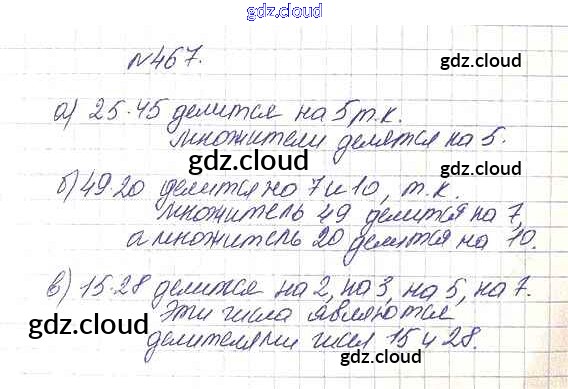 gdz.cloud
№467.
gdz.cloud
а) 25·45 делится на 5, т.к.
множители делятся на 5.
gdz.cloud
gdz.cloud
б) 49·20 делится на 7 и 10, т.к.
множитель 49 делится на 7,
а множитель 20 делится на 10.
gdz.cloud
в) 15·28 делится на 2, на 3, на 5, на 7.
Эти числа являются
gdz.cloud
делителями чисел 15 и 28.
gdz.cloud